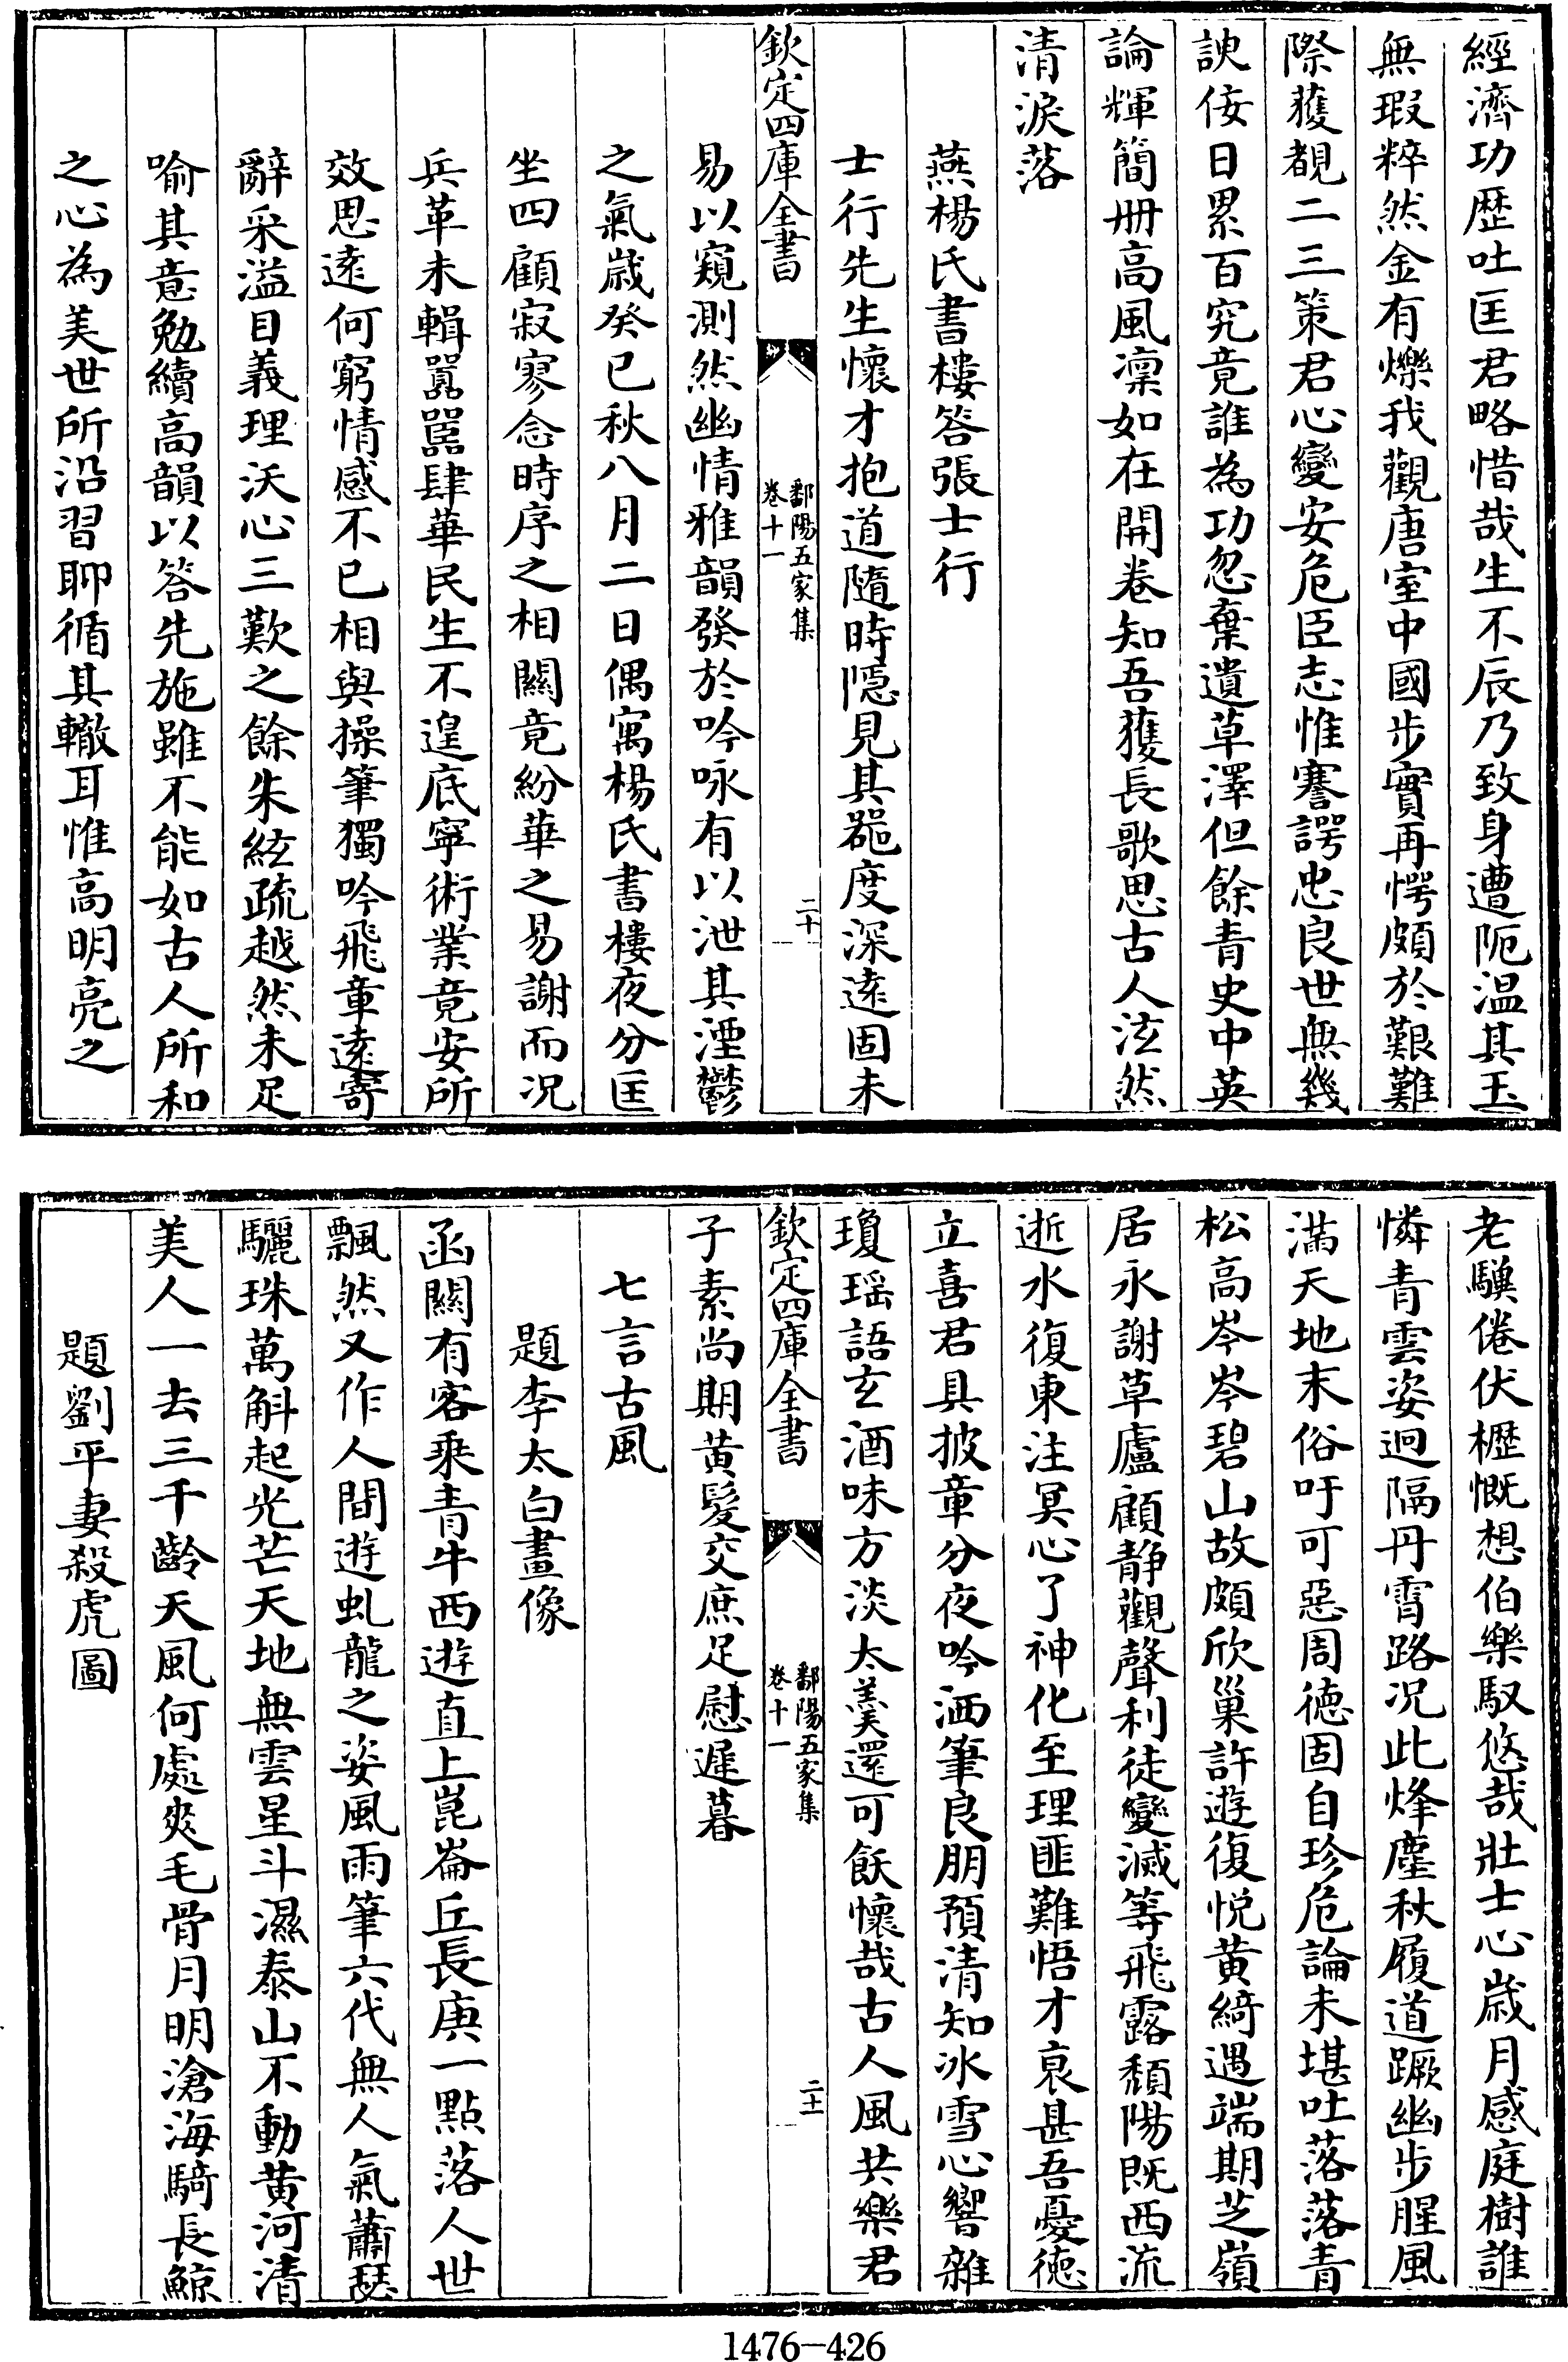 經濟功歴吐匡君略惜哉生不辰乃致身遭阨温其玉
無瑕粹然金有爍我觀唐室中國步實再愕頗於艱難
際蒦覩二三策君心變安危臣志惟謇諤忠良世無幾
諛佞日累百究竟誰為功忽棄遺草澤但餘青史中英
論輝簡冊高風凛如在開卷知吾獲長歌思古人泫然
清淚落
燕楊氏書樓答張士行
士行先生懷才抱道隨時隠見其噐度深遠固未
欽定四庫全書
鄱陽五家集
卷十一
二十
易以窺測然幽情雅韻發於吟咏有以泄其湮鬱
之氣歳癸巳秋八月二日偶寓楊氏書樓夜分匡
坐四顧寂寥念時序之相關竟紛華之易謝而况
兵革未輯嚚嚚肆華民生不遑底寧術業竟安所
效思遠何窮情感不已相與操筆獨吟飛章遠寄
辭采溢目義理沃心三歎之餘朱絃疏越然未足
喻其意勉續高韻以答先施雖不能如古人所和
之心為美世所沿習聊循其轍耳惟高明亮之
老驥倦伏櫪慨想伯樂馭悠哉壯士心歳月感庭樹誰
憐青雲姿迥隔丹霄路况此烽塵秋履道蹶幽步腥風
滿天地末俗吁可惡周徳固自珍危論未堪吐落落青
松高岑岑碧山故頗欣巢許遊復悦黄綺遇端期芝嶺
居永謝草廬顧静觀聲利徒變滅等飛露頽陽既西流
逝水復東注冥心了神化至理匪難悟才哀甚吾憂徳
立喜君具披章分夜吟洒筆良朋預清知冰雪心響雜
瓊瑶語玄酒味方淡太羮還可飫懷哉古人風共樂君
欽定四庫全書
鄱陽五家集
卷十一
二十一
子素尚期黄髮交庶足慰遲暮
七言古風
題李太白畫像
函關有客乘青牛西遊直上崑崙丘長庚一點落人世
飄然又作人間遊虬龍之姿風雨筆六代無人氣蕭瑟
驪珠萬斛起光芒天地無雲星斗濕泰山不動黄河清
美人一去三千齡天風何處爽毛骨月明滄海騎長鯨
題劉平妻殺虎圖
1476-426